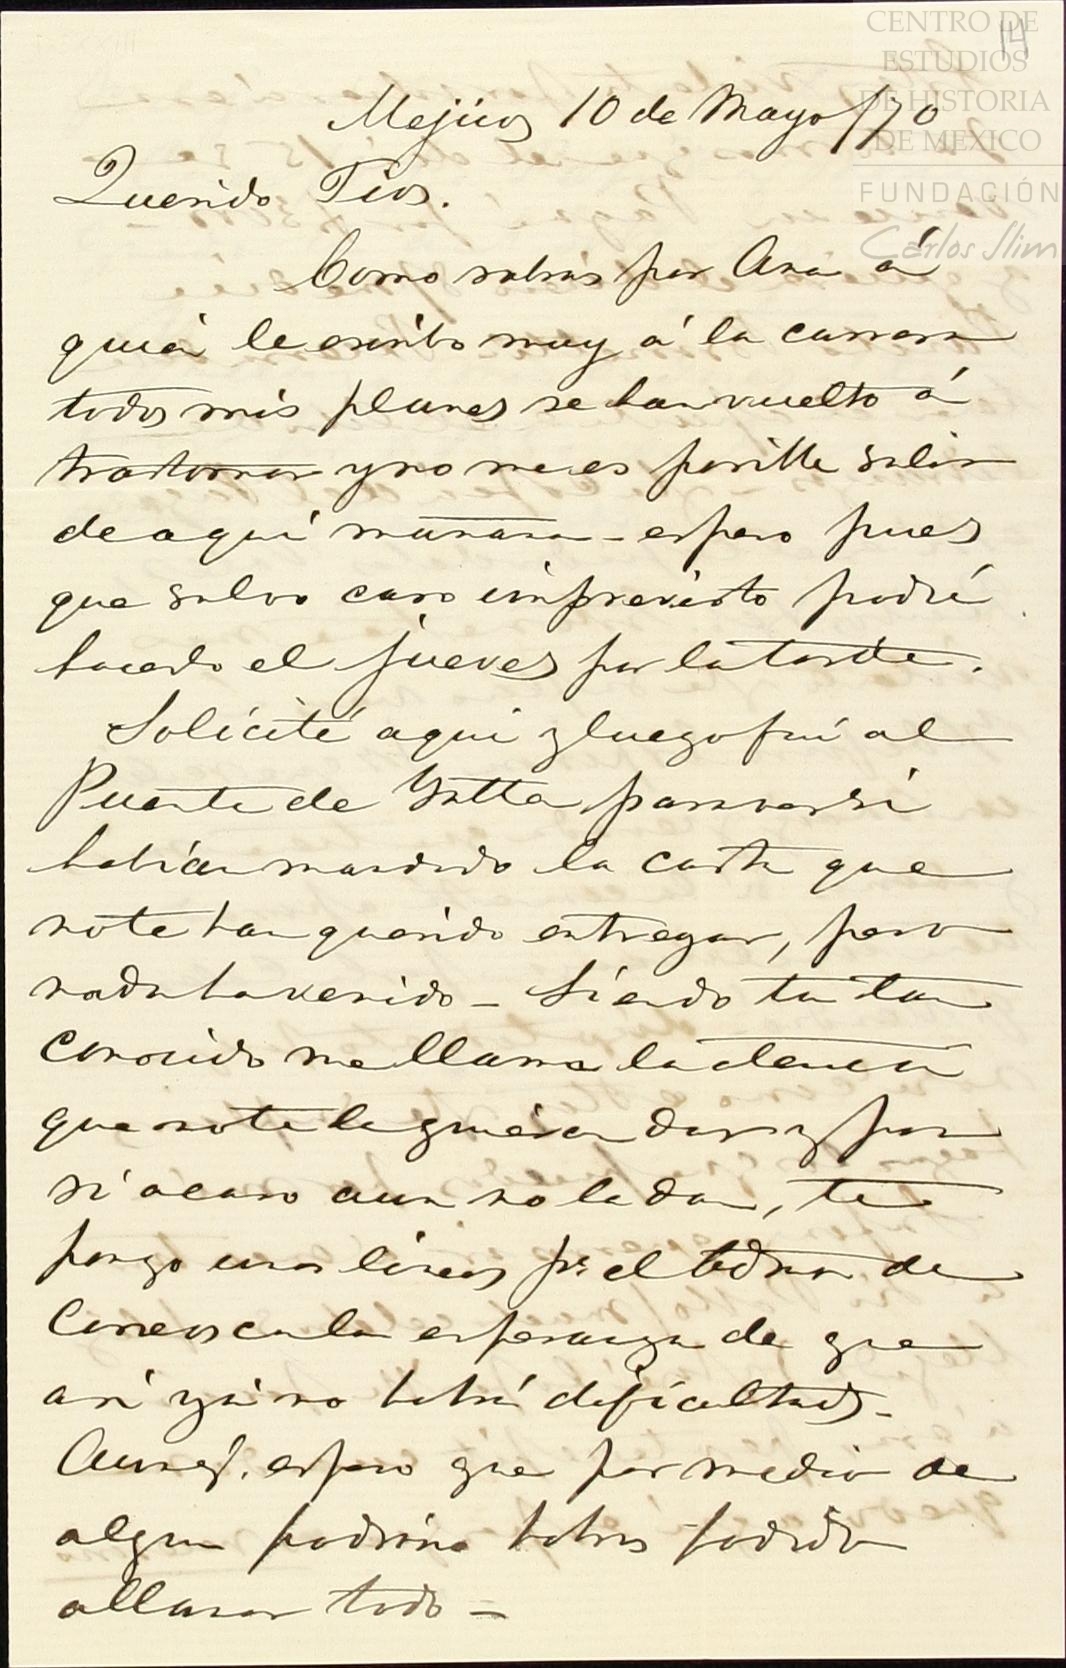 14
CENTRO DE
ESTUDIOS
DE HISTORIA
DE MEXICO
FUNDACIÓN
Carlos Slim
Mejico 10 de Mayo /70
Querido Tios.
Como sabras por Ana á
quien le escribo muy á la carrera
todos mis planes se han vuelto á
trastornar y no me es posible salir
de aqui mañana - espero pues
que salvo caso imprevisto podré
hacerlo el jueves por la tarde.
Solicité aqui y luego fui al
Puente de Ystla para ver si
habian mandado la carta que
no te han querido entregar, pero
nada ha venido - Siendo tu tan
conocido me llama la atencion
que no te la quieran dar y por
si acaso aun no la dan, te
pongo unas lineas pr. el admor de
Correos con la esperanza de que
asi ya no habrá dificultad -
Aunq. espero que por medio de
algun padrino habras podido
allanar todo -